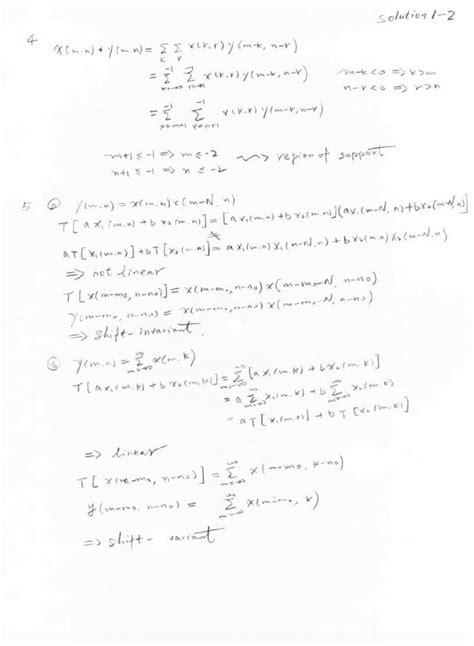 Solution 1-2
4
x(m,n) * y(m,n) = Σ_k Σ_r x(k,r) y(m-k, n-r)
= Σ Σ x(k,r) y(m-k, n-r)    m-k<0 ⇒ k>m
n-r<0 ⇒ r>n
= Σ_{k=m+1}^{-1} Σ_{r=n+1}^{-1} x(k,r) y(m-k, n-r)
m+1 ≤ -1 ⇒ m ≤ -2
n+1 ≤ -1 ⇒ n ≤ -2    ⇝ region of support
5 ⓐ y(m,n) = x(m,n) x(m-N, n)
T[a x₁(m,n) + b x₂(m,n)] = [a x₁(m,n) + b x₂(m,n)][a x₁(m-N, n) + b x₂(m-N, n)]
≠
aT[x₁(m,n)] + bT[x₂(m,n)] = a x₁(m,n) x₁(m-N, n) + b x₂(m,n) x₂(m-N, n)
⇒ not linear
T[x(m-m₀, n-n₀)] = x(m-m₀, n-n₀) x(m-m₀-N, n-n₀)
y(m-m₀, n-n₀) = x(m-m₀, n-n₀) x(m-m₀-N, n-n₀)
⇒ shift-invariant.
ⓑ y(m,n) = Σ x(m,k)
T[a x₁(m,k) + b x₂(m,k)] = Σ [a x₁(m,k) + b x₂(m,k)]
= a Σ x₁(m,k) + b Σ x₂(m,k)
= aT[x₁(m,k)] + bT[x₂(m,k)]
⇒ linear
T[x(m-m₀, n-n₀)] = Σ x(m-m₀, k-n₀)
y(m-m₀, n-n₀) = Σ x(m-m₀, k)
⇒ shift-variant